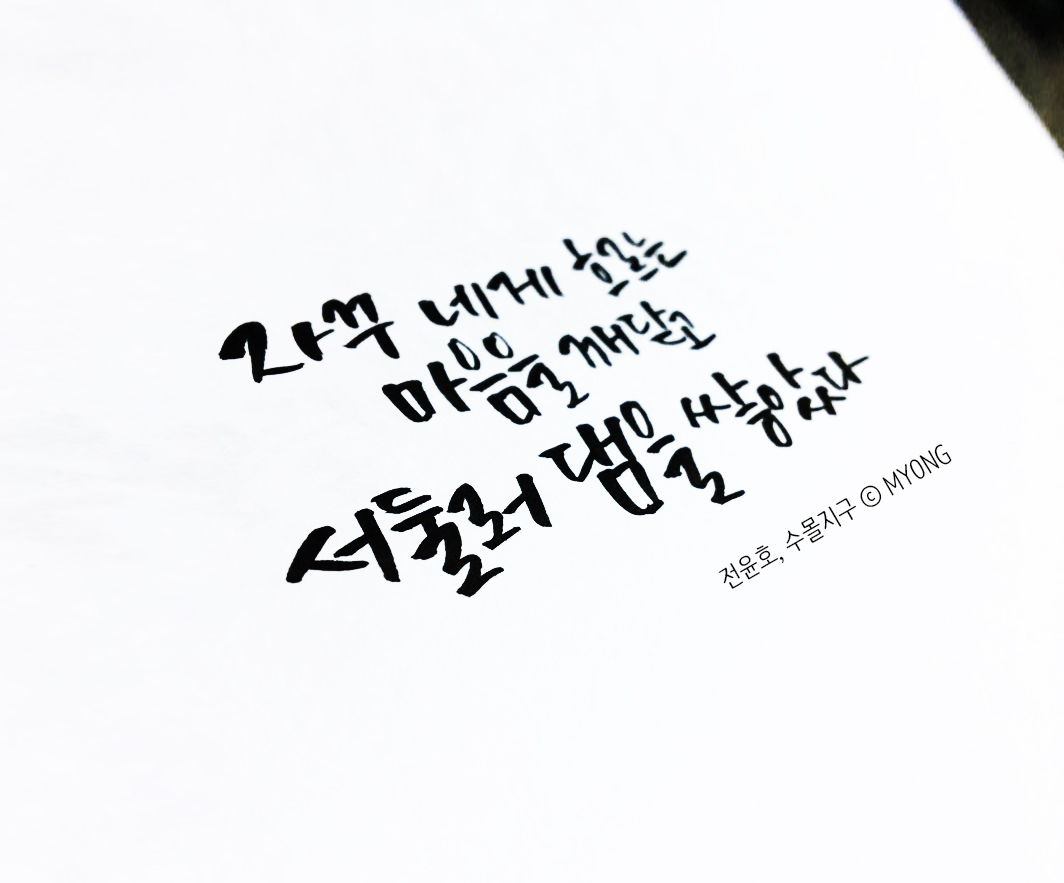 자꾸 네게 흐르는
마음을 깨닫고
서둘러 댐을 쌓았다
전윤호, 수몰지구 ⓒ MYONG